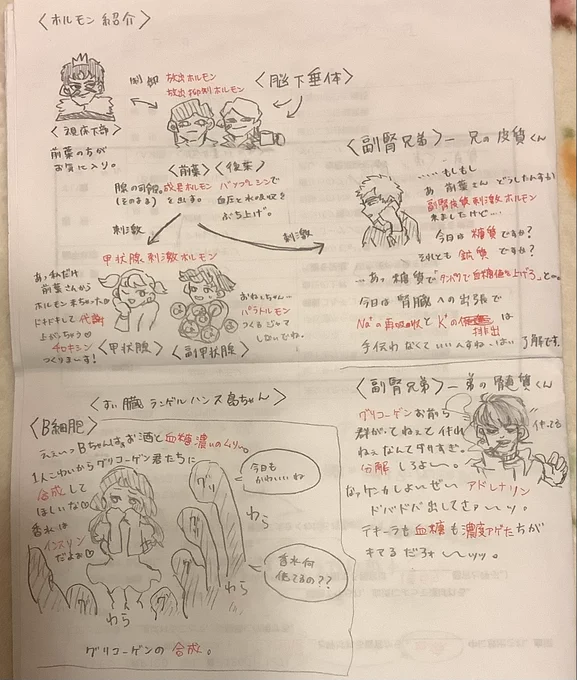 〈ホルモン紹介〉
制御
放出ホルモン
放出抑制ホルモン
〈脳下垂体〉
〈視床下部〉
前葉の方が
お気に入り。
〈前葉〉
〈後葉〉
成長ホルモン
を出す。
バソプレシンで
血圧と水吸収を
ぶち上げ。
刺激
刺激
甲状腺刺激ホルモン
あっ私だけ
前葉さんから
ホルモン来ちゃった
ドキドキして代謝
上がっちゃう♡
チロキシン
つくりまーす!
〈甲状腺〉
〈副甲状腺〉
おねーちゃん〜
パラトルモン
つくるジャマ
しないでね。
〈副腎兄弟〉ー兄の皮質くん
……もしもし
あ 前葉さん どうしたんすか
副腎皮質刺激ホルモン
来ましたけど…
今日は 糖質ですか?
それとも 鉱質 ですか?
…あっ 糖質で「タンパクで血糖値を上げろ」と…。
今日は 腎臓 への出張で
Na⁺の再吸収とK⁺の
排出
は
手伝わなくていいんすね…はい 了解です。
〈すい臓 ランゲルハンス島ちゃん〉
〈B細胞〉
えぇ〜っBちゃんはぁお酒と血糖濃いのムリ〜。
1人こわいからグリコーゲン君たちに
合成して
ほしいな♡
香水は
インスリン
だよぉ♡
グリ
今日も
かわいいね
香水何
使ってるの??
わら
わら
わら
わら
グリコーゲンの 合成。
〈副腎兄弟〉ー弟の髄質くん
グリコーゲンお前ら
群がってねぇと作れ
ねぇなんてダサすぎ。
分解 しろよ〜。
なァケンカしよーぜぃ アドレナリン
ドバドバ出してさァ〜ッ。
テキーラも血糖も濃度アゲたちが
キてるだろォ〜〜ッッ。